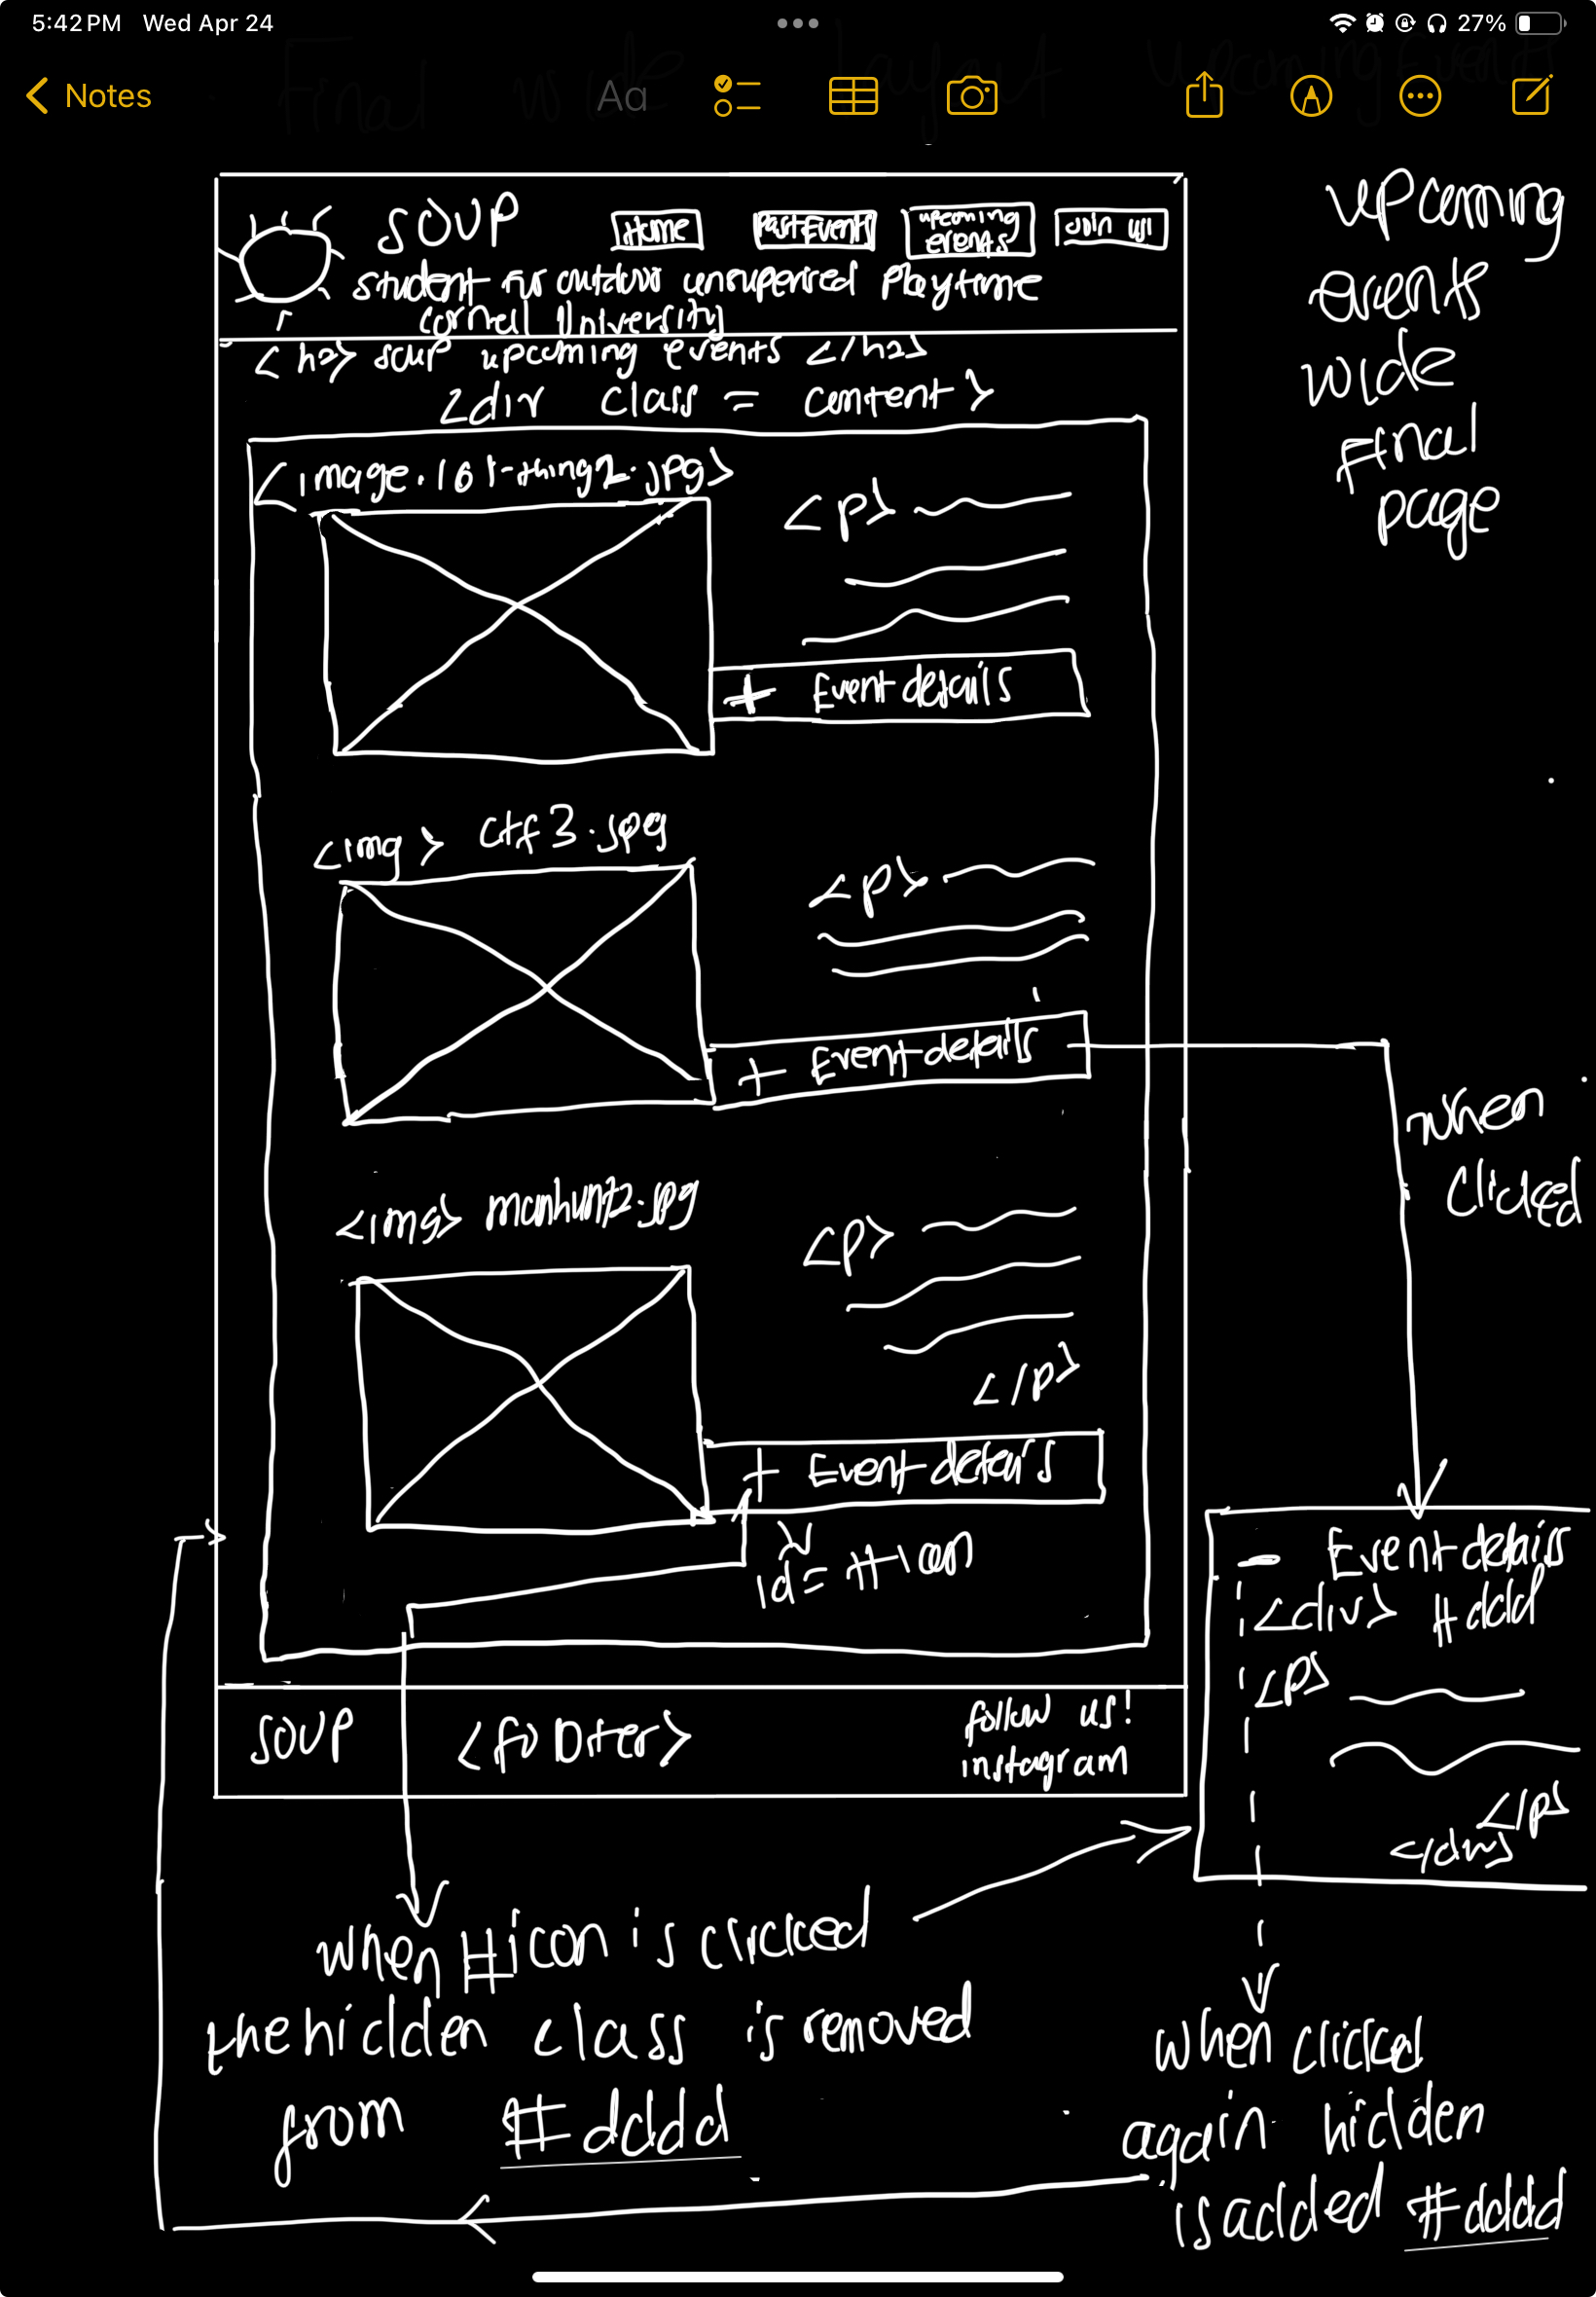 5:42 PM Wed Apr 24
27%
Final wide Layout upcoming Events
Notes
Aa
SOUP
Home
Past Events
upcoming
events
Join us!
student for outdoor unsupervised Playtime
Cornell University
<h2> soup upcoming events </h2>
<div class = content>
<image.161-thing2.jpg>
<p>
+ Event details
<img> ctf3.jpg
<p>
+ Event details
<img> manhunt2.jpg
<p>
</p>
+ Event details
id= #icon
SOUP
<footer>
follow us!
instagram
upcoming
events
wide
final
page
when
clicked
- Event details
<div> #dddd
<p>
</p>
</div>
when #icon is clicked
the hidden class is removed
from #dddd
when clicked
again hidden
is added #dddd